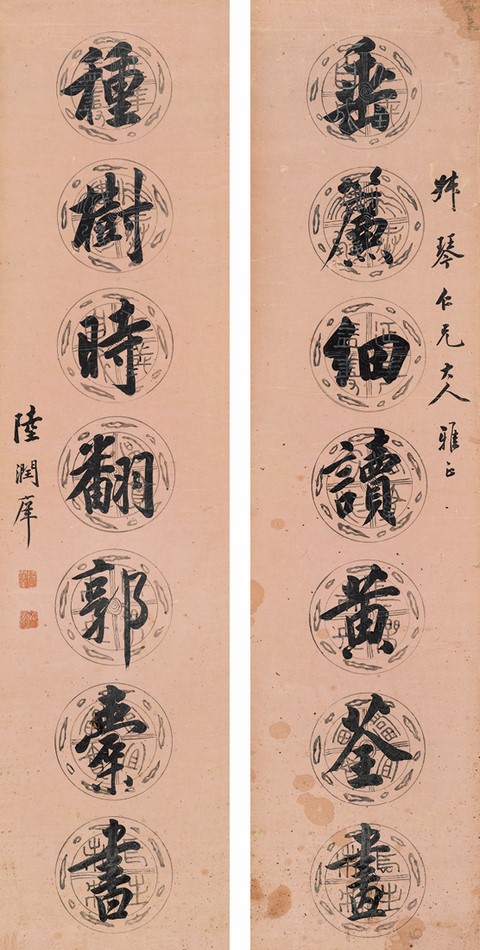 琴仁兄大人雅正
垂簾細讀黃荃畫
種樹時翻郭橐書
陸潤庠